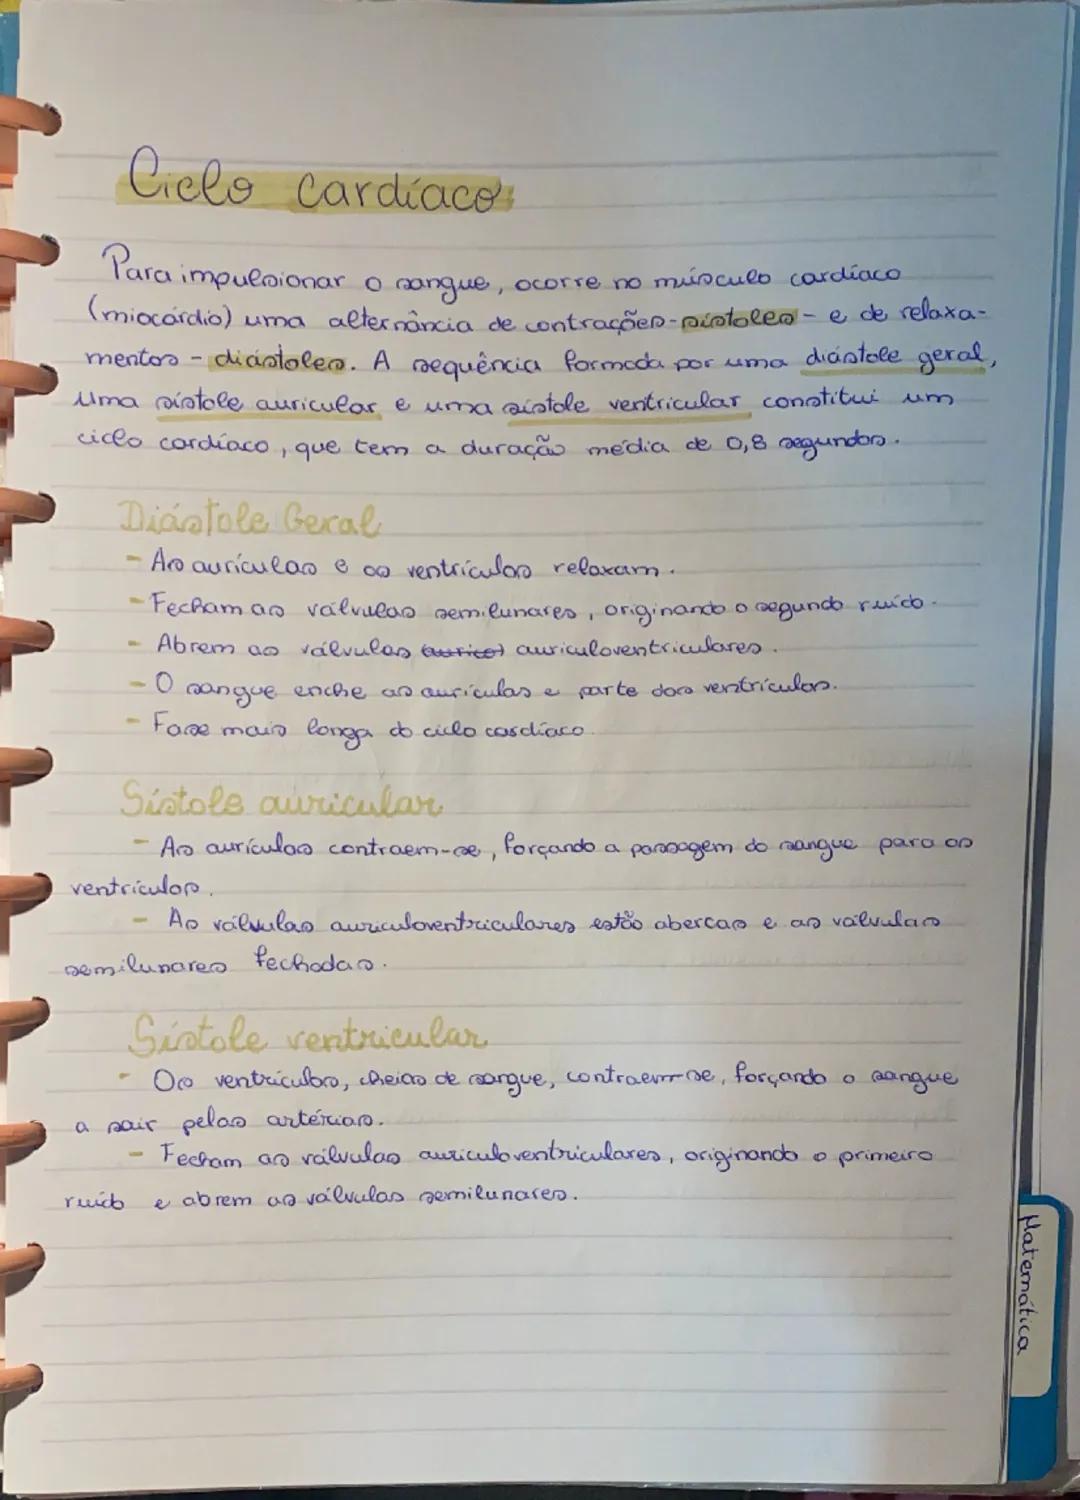 Ciclo cardíaco:
Para impulsionar o sangue, ocorre no músculo cardíaco
(miocárdio) uma alternância de contrações - sístoles - e de relaxa-
mentos - diástoles. A sequência formada por uma diástole geral,
uma sístole auricular e uma sístole ventricular constitui um
ciclo cardíaco, que tem a duração média de 0,8 segundos.
Diástole Geral
- As aurículas e os ventrículos relaxam.
- Fecham as válvulas semilunares, originando o segundo ruído.
- Abrem as válvulas auriculoventriculares.
- O sangue enche as aurículas e parte dos ventrículos.
- Fase mais longa do ciclo cardíaco.
Sístole auricular
- As aurículas contraem-se, forçando a passagem do sangue para os
ventrículos.
- As válvulas auriculoventriculares estão abertas e as válvulas
semilunares fechadas.
Sístole ventricular
- Os ventrículos, cheios de sangue, contraem-se, forçando o sangue
a sair pelas artérias.
- Fecham as válvulas auriculoventriculares, originando o primeiro
ruído e abrem as válvulas semilunares.
Matemática